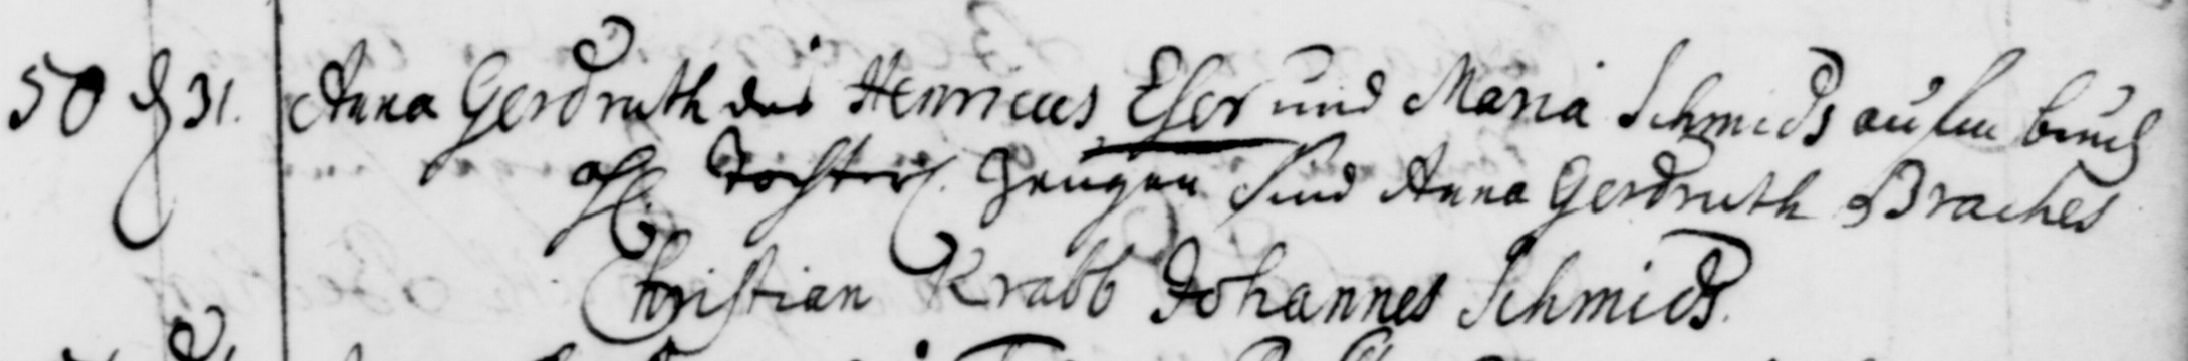 50 d 31. Anna Gerdruth des Henricus Eser und Maria Schmids aufm bruch
ehl. Tochter. Zeugen sind Anna Gerdruth Braches
Christian Krabb Johannes Schmids.